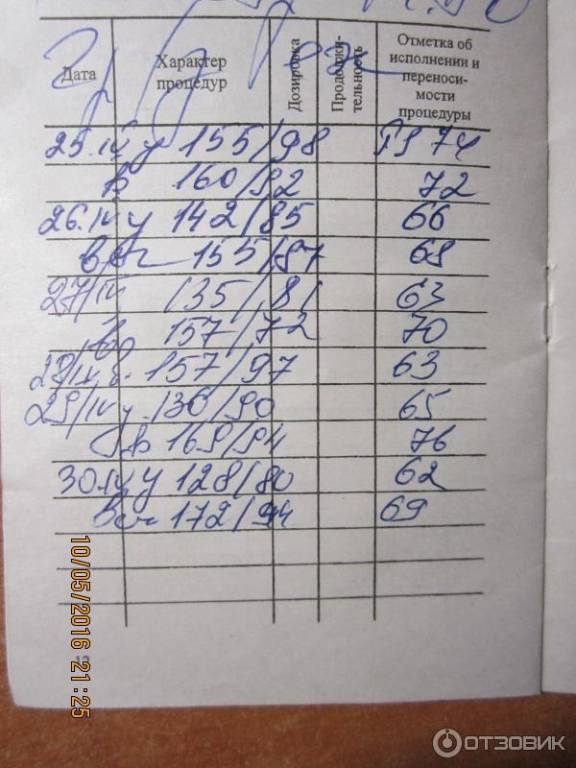 Дата
Характер процедур
Дозировка
Продолжи-
тельность
Отметка об
исполнении и
переноси-
мости
процедуры
25.IV у 155/98 PS 74
В 160/92 72
26.IV у 142/85 66
веч 155/87 68
27/IV 135/81 63
Во 157/72 70
28/IV в. 157/97 63
29/IV у 130/90 65
в 169/94 76
30.IV у 128/80 62
Веч 172/94 69
12
10/05/2016 21:25
ОТЗОВИК